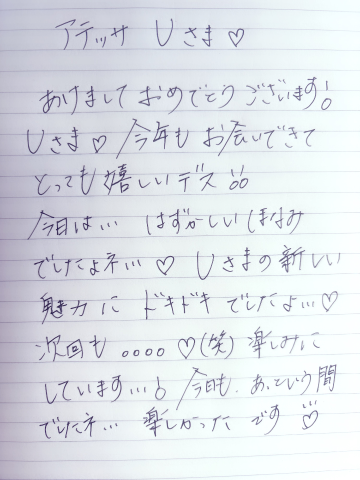 アテッサ Uさま♡
あけまして おめでとう ございます!
Uさま♡ 今年も お会いできて
とっても 嬉しいデス
今日は… はずかしい
でしたよネ…♡ Uさまの 新しい
魅力に ドキドキ でしたよ…♡
次回も 。。。。♡(笑) 楽しみに
しています…! 今日も、あっという間
でしたネ… 楽しかった です